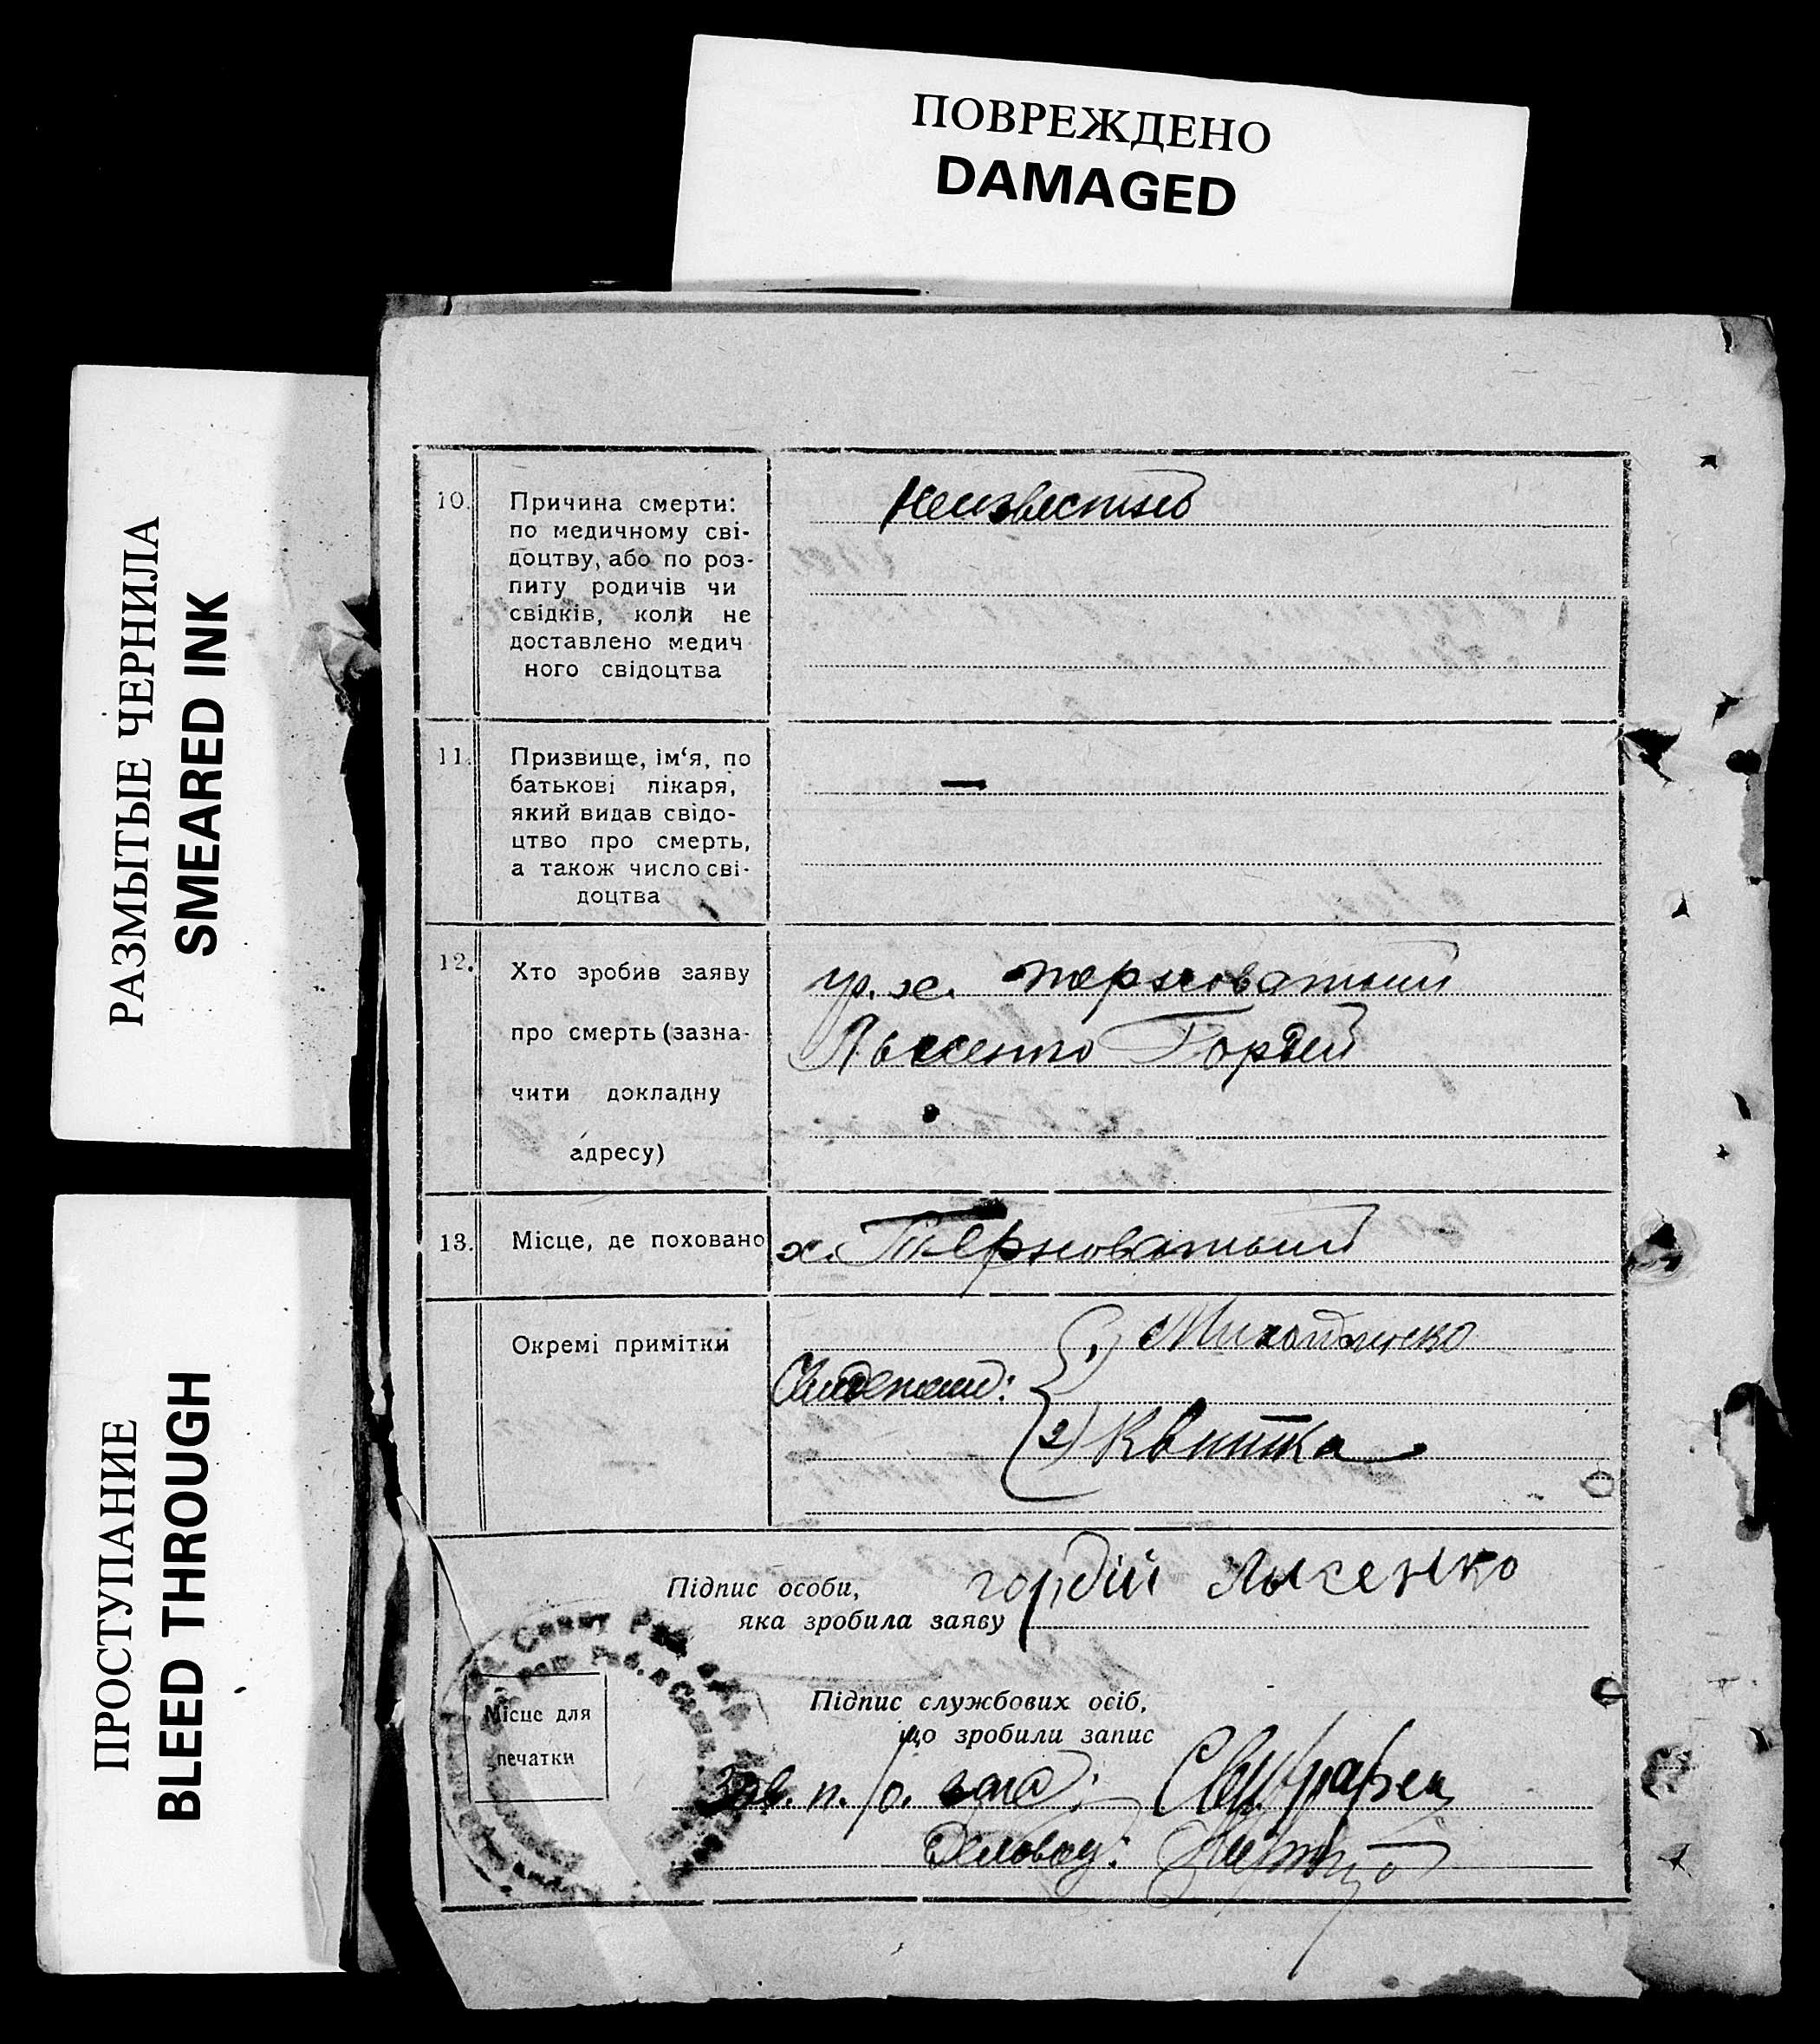 ПОВРЕЖДЕНО
DAMAGED
РАЗМЫТЫЕ ЧЕРНИЛА
SMEARED INK
ПРОСТУПАНИЕ
BLEED THROUGH
10. Причина смерти:
по медичному сві-
доцтву, або по роз-
питу родичів чи
свідків, коли не
доставлено медич
ного свідоцтва
Неизвестно
11. Призвище, ім‘я, по
батькові лікаря,
який видав свідо-
цтво про смерть,
а також число сві-
доцтва
—
12. Хто зробив заяву
про смерть (зазна-
чити докладну
адресу)
гр. х. Терноватый
Лысенко Гордей
13. Місце, де поховано
х. Терноватый
Окремі примітки
Свидетели:
1)
2) Квитка
Підпис особи,
яка зробила заяву
гордій Лысенко
Місце для
печатки
Підпис службових осіб,
що зробили запис
Зав. п./о.
Деловод: